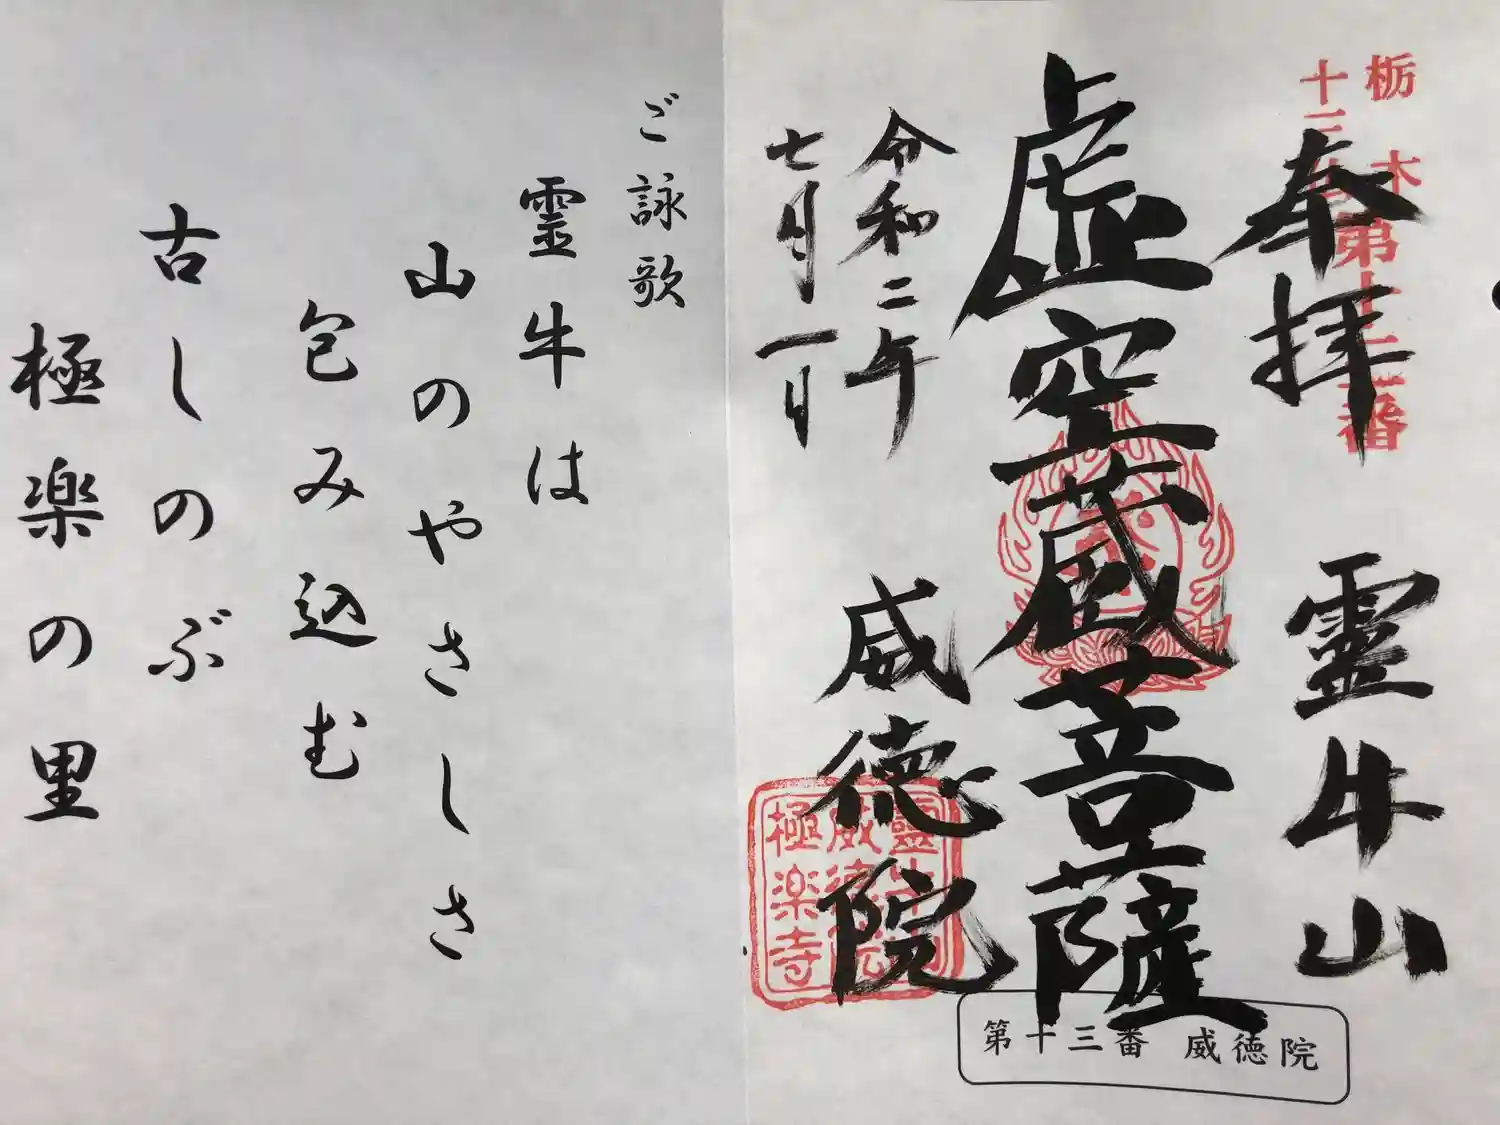 栃木
十三仏
第十三番
奉拝
霊牛山
虚空蔵菩薩
令和二年
七月一日
威徳院
極楽寺
第十三番 威徳院
ご詠歌
霊牛は
山のやさしさ
包み込む
古しのぶ
極楽の里